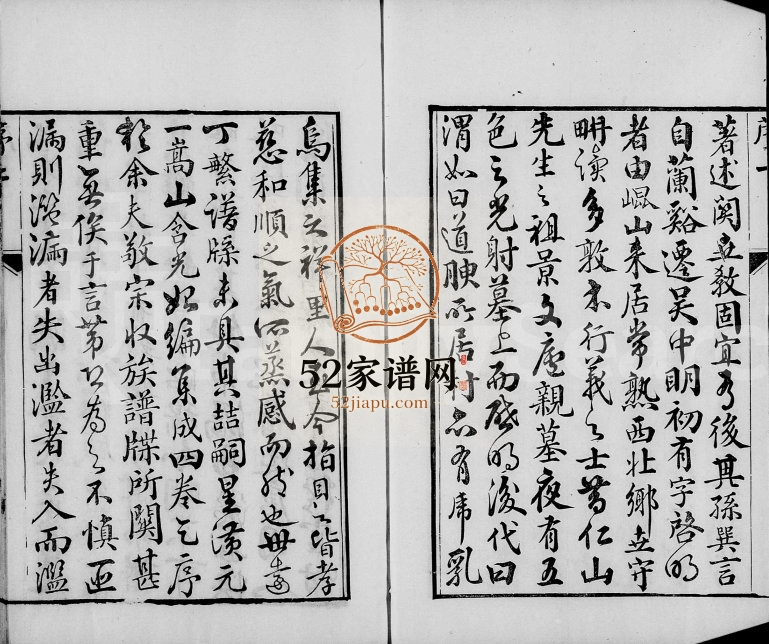 序一
著述関世教固宜有後其孫巽言
自蘭谿遷吴中明初有字啓明
者由崐山来居常熟西北鄉世守
畊讀多敦本行義之士蓄仁山
先生之祖景文廬親墓夜有五
色之光射墓上而盛明後代曰
渭如曰道腴所居村亦有馬乳
烏集之祥里人至今指目之皆孝
慈和順之氣所蒸感而然也世遠
丁繁譜牒未具其喆嗣星潢元
一嵩山含光始編集成四卷乞序
於余夫敬宗收族譜牒所關甚
重無俟于言第以為之不慎匪
漏則濫漏者失出濫者失入而濫
52家谱网
52jiapu.com